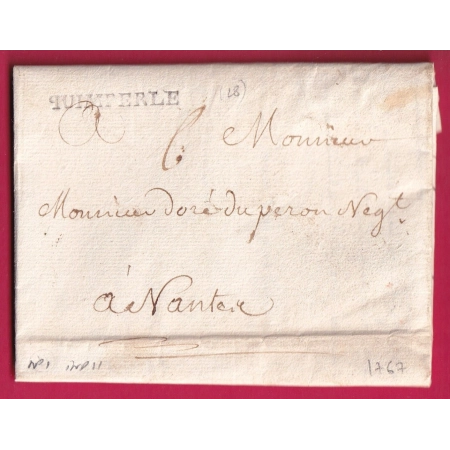 QUIMPERLE
(28)
A 6 Monsieur
Monsieur doré du peron Negt
à Nantes
N°1 1767